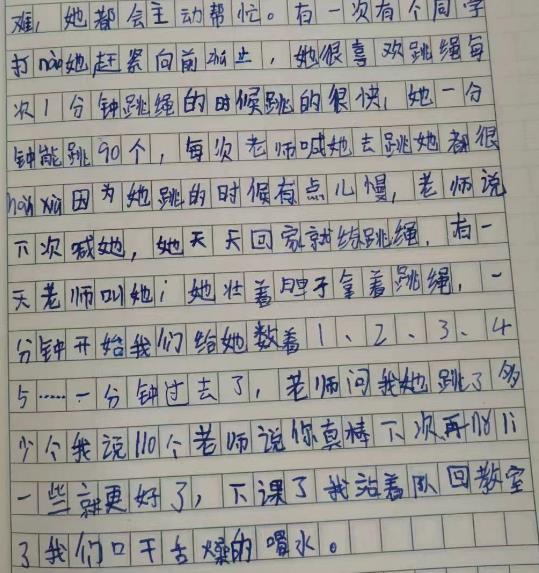 难，她都会主动帮忙。有一次有个同学
打nào她赶紧向前zǔ止，她很喜欢跳绳每
次1分钟跳绳的时候跳的很快，她一分
钟能跳90个，每次老师喊她去跳她都很
hài xiū因为她跳的时候有点儿慢，老师说
下次喊她，她天天回家就练跳绳，有一
天老师叫她；她壮着胆子拿着跳绳，一
分钟开始我们给她数着1、2、3、4
5……一分钟过去了，老师问我她跳了多
少个我说110个老师说你真棒下次再nǔ lì
一些就更好了，下课了我站着队回教室
了我们口干舌燥的喝水。